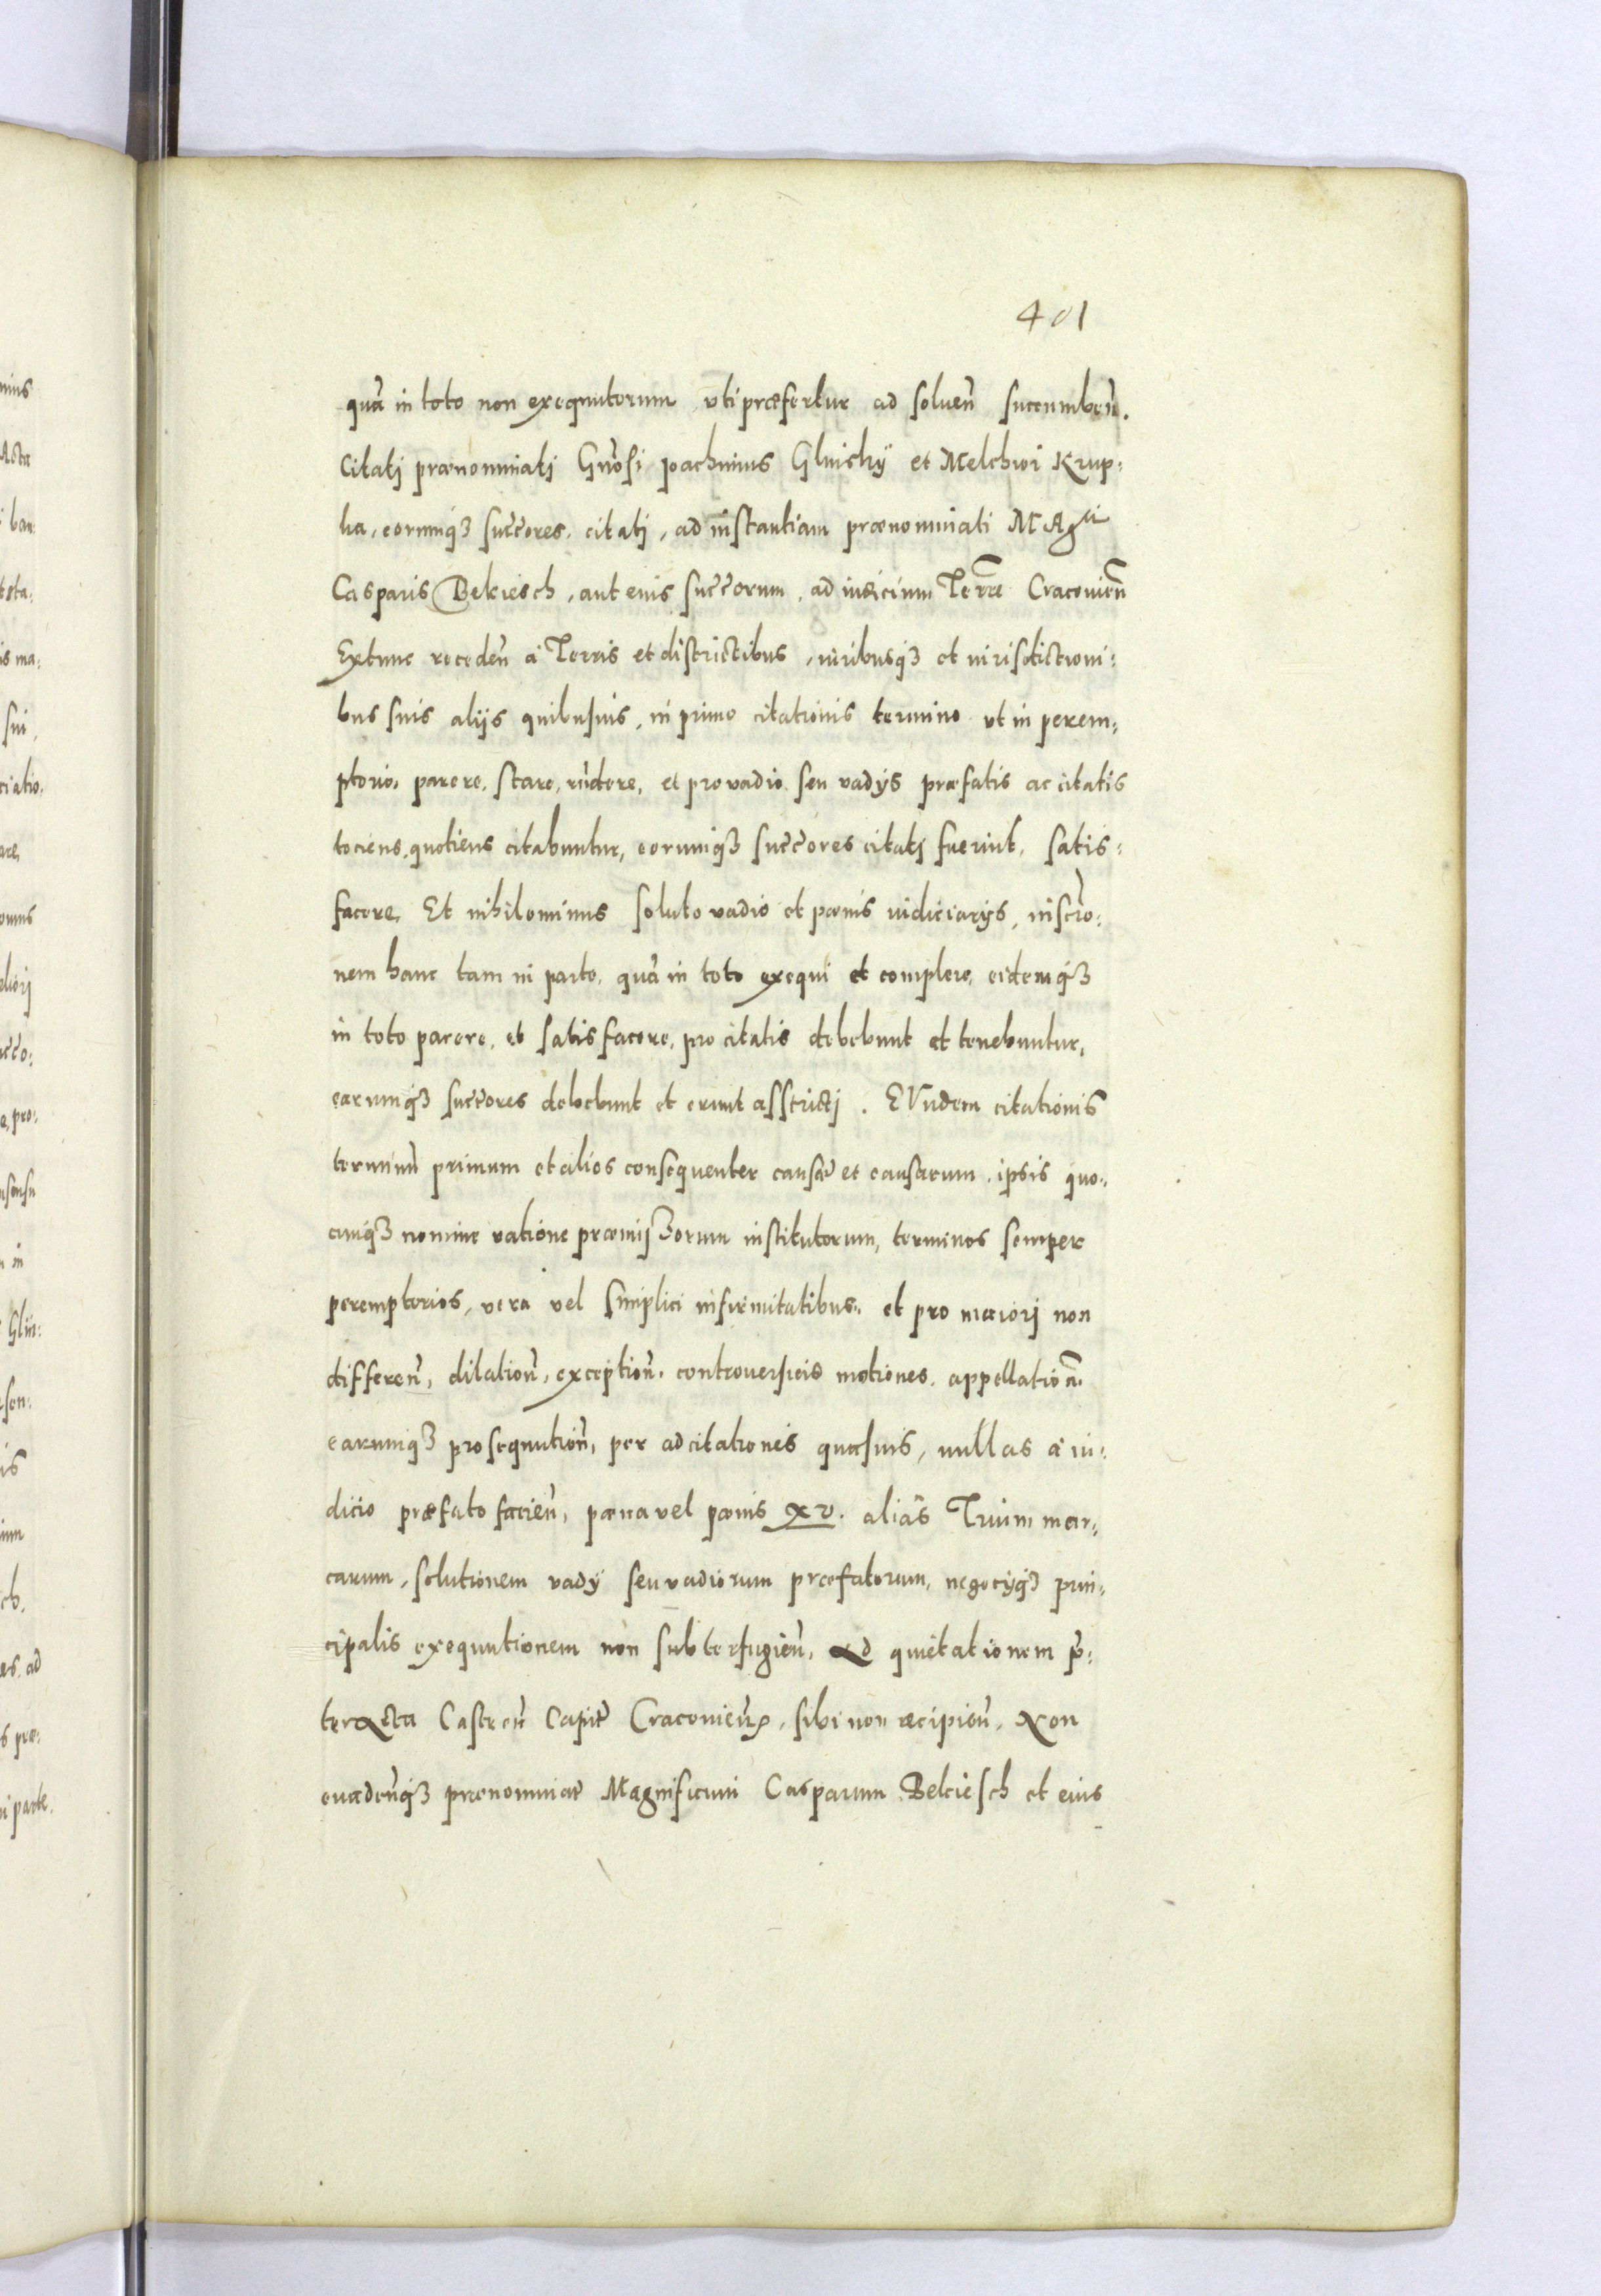 401
quā in toto non exequutorum uti præfertur ad soluen̄ succumben̄.
Citatj prænominatj Gn̄osi Joachimus Glinsky et Melchior Krup:
ka, eorumq₃ succ̄ores. citatj, ad instantiam prænominati M Agci
Casparis Bekiesch, aut eius succ̄orum, ad iudicium Terræ Cracouien̄
Extunc receden̄ à Terris et districtibus, iuribusq₃ et iurisdictioni:
bus suis alijs quibusuis, in primo citationis termino ut in perem:
ptorio, parere, stare, rn̄dere, et pro vadio seu vadys præfatis ac citatis
tociens, quotiens citabuntur, eorumq₃ succ̄ores citatj fuerint, satis:
facere, Et nihilominus soluto vadio et pænis iudiciarys, inscr̄o:
nem hanc tam in parte, quā in toto exequi et complere, eidemq₃
in toto parere, et satisfacere, pro citatis debebunt et tenebuntur,
earumq₃ succ̄ores debebunt et erunt asstrictj. EUndem citationis
terminū primum et alios consequenter causæ et causarum, ipsis quo:
cunq₃ nomine ratione præmissorum institutorum, terminos semper
peremptorios, vera vel simplici infirmitatibus, et pro maiori non
differen̄, dilation̄, exception̄, controuersieis motiones, appellation̄.
earumq₃ prosequution̄, per ad citationes quasuis, nullas à iu:
dicio præfato facien̄, pæna vel pænis xv. alias Trium mar:
carum, solutionem vady seu vadiorum præfatorum, negocyq₃ prin:
cipalis exequutionem non subterfugien̄, Ad quietationem p̄:
ter Acta Castren̄ Capit̄ Cracouien̄, sibi non recipien̄, Non
euaden̄q₃ prænominat̄ Magnificum Casparum Bekiesch et eius